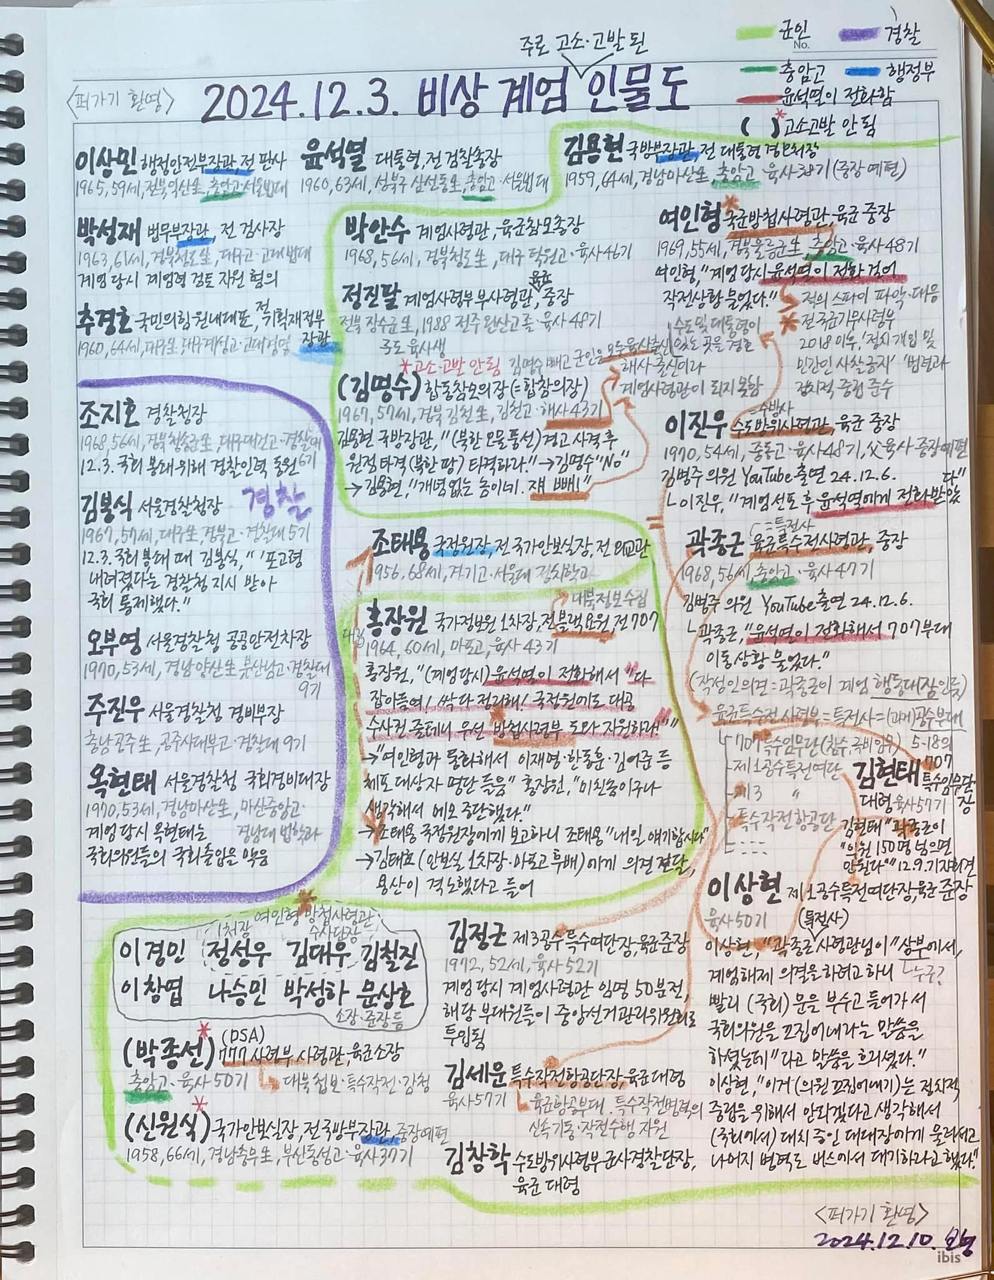 주로 고소·고발된
군인
경찰
No.
충암고
행정부
윤석열이 전화함
( )* 고소고발 안 됨
<퍼가기 환영>
2024.12.3. 비상 계엄 인물도
이상민 행정안전부장관, 전 판사
1965, 59세, 전북익산生, 충암고·서울법대
윤석열 대통령, 전 검찰총장
1960, 63세, 성북구 삼선동生, 충암고·서울법대
김용현 국방부장관, 전 대통령 경호처장
1959, 64세, 경남마산生 충암고·육사38기 (중장 예편)
박성재 법무부장관, 전 검사장
1963, 61세, 경북청도生, 대구고·고대법대
계엄 당시 계엄령 검토 지원 혐의
추경호 국민의힘 원내대표, 전 기획재정부장관
1960, 64세, 대구生, 대구계성고·고대경영
박안수 계엄사령관, 육군참모총장
1968, 56세, 경북청도生, 대구 덕원고·육사46기
정진팔 계엄사령부 부사령관, 육군 중장
전북 장수군生, 1988 전주 완산고졸·육사48기
주로 육사생
*고소·고발 안 됨
(김명수) 합동참모의장 (=합참의장)
1967, 57세, 경북 김천生, 김천고·해사43기
김명수 빼고 군인은 모두 육사출신
해사 출신이라
계엄사령관이 되지 못함
김용현 국방장관, "(북한 오물풍선) 경고 사격 후
원점 타격 (북한 땅) 타격하라." → 김명수 "No"
→ 김용현, "개념 없는 놈이네. 쟤 빼!"
여인형* 국군방첩사령관, 육군 중장
1969, 55세, 경북울릉군生, 충암고·육사48기
여인형, "계엄 당시 윤석열이 전화 걸어
작전상황 물었다."
적의 스파이 파악·대응
전 국군기무사령부
2018 이후, '정치개입 및
민간인 사찰 금지' '법령과
정치적 중립 준수
수도 및 대통령이
있는 곳을 경호
=수방사
이진우 수도방위사령관, 육군 중장
1970, 54세, 중동고·육사48기, 父 육사·중장예편
김병주 의원 YouTube 출연 24.12.6.
└이진우, "계엄선포 후 윤석열에게 전화받았다"
=특전사
곽종근 육군특수전사령관, 중장
1968, 56세, 충암고·육사47기
김병주 의원 YouTube 출연 24.12.6.
└곽종근, "윤석열이 전화해서 707부대
이동상황 물었다."
(작성인의견=곽종근이 계엄 행동대장인듯)
육군특수전사령부=특전사=(과거)공수부대
707특수임무단 (참수, 국비임무)
제1공수특전여단
제3 〃
특수작전항공단
5·18의
김현태 707 특수임무단장
대령, 육사57기
김현태 "곽종근이
"의원 150명 넘으면
안된다"" 12.9. 기자회견
조지호 경찰청장
1968, 56세, 경북청송군生, 대구대건고·경찰대6기
12.3. 국회 봉쇄 위해 경찰인력 동원
경찰
김봉식 서울경찰청장
1967, 57세, 대구生, 경북고·경찰대 5기
12.3. 국회 봉쇄 때 김봉식, "'포고령
내려졌다'는 경찰청 지시 받아
국회 통제했다."
오부영 서울경찰청 공공안전차장
1970, 53세, 경남양산生, 부산남고·경찰대
9기
주진우 서울경찰청 경비부장
충남공주生, 공주사대부고·경찰대 9기
옥현태 서울경찰청 국회경비대장
1970, 53세, 경남마산生, 마산중앙고·
경남대 법학과
계엄 당시 옥현태는
국회의원들의 국회출입을 막음
조태용 국정원장, 전 국가안보실장, 전 외교관
1956, 68세, 경기고·서울대 정치학과
대북정보수집
홍장원 국가정보원 1차장, 전 블랙요원, 전 707
1964, 60세, 마포고, 육사 43기
홍장원, "(계엄당시) 윤석열이 전화해서 "다
잡아들여! 싹 다 정리해! 국정원에도 대공
수사권 줄테니 우선 방첩사령부 도와 지원하라""
→ "여인형과 통화해서 이재명·한동훈·김어준 등
체포 대상자 명단 들음" 홍장원, "미친놈이구나
생각해서 메모 중단했다."
→ 조태용 국정원장에게 보고하니 조태용 "내일 얘기합시다"
→ 김태효 (안보실 1차장·마포고 후배)에게 의견 전달,
용산이 격노했다고 들어
여인형 방첩사령관
1처장
수사단장
이경민 정성우 김대우 김철진
이창엽 나승민 박성하 문상호
소장·준장 등
(박종선)* (DSA) 777 사령부 사령관, 육군소장
충암고·육사 50기
대북 첩보·특수작전·감청
(신원식)* 국가안보실장, 전 국방부장관, 중장예편
1958, 66세, 경남통영生, 부산동성고·육사37기
김정근 제3공수특수여단장, 육군준장
1972, 52세, 육사52기
계엄 당시 계엄사령관 임명 50분전,
해당 부대원들이 중앙선거관리위원회로
투입됨
김세운 특수작전항공단장, 육군 대령
육사57기
육군항공부대, 특수작전병력의
신속기동·작전수행 지원
김창학 수도방위사령부 군사경찰단장,
육군 대령
이상현 제1공수특전여단장, 육군 준장
육사50기
(특전사)
이상현, "곽종근 사령관님이 "상부에서,
└누구?
계엄해제 의결을 하려고 하니
빨리 (국회) 문을 부수고 들어가서
국회의원을 끄집어내라는 말씀을
하셨는데"라고 말씀을 흐리셨다."
이상현, "이거 (의원 끄집어내기)는 정치적
중립을 위해서 안되겠다고 생각해서
(국회에서) 대치 중인 대대장에게 물러서고
나머지 병력도 버스에서 대기하라고 했다."
<퍼가기 환영>
2024.12.10.
ibis